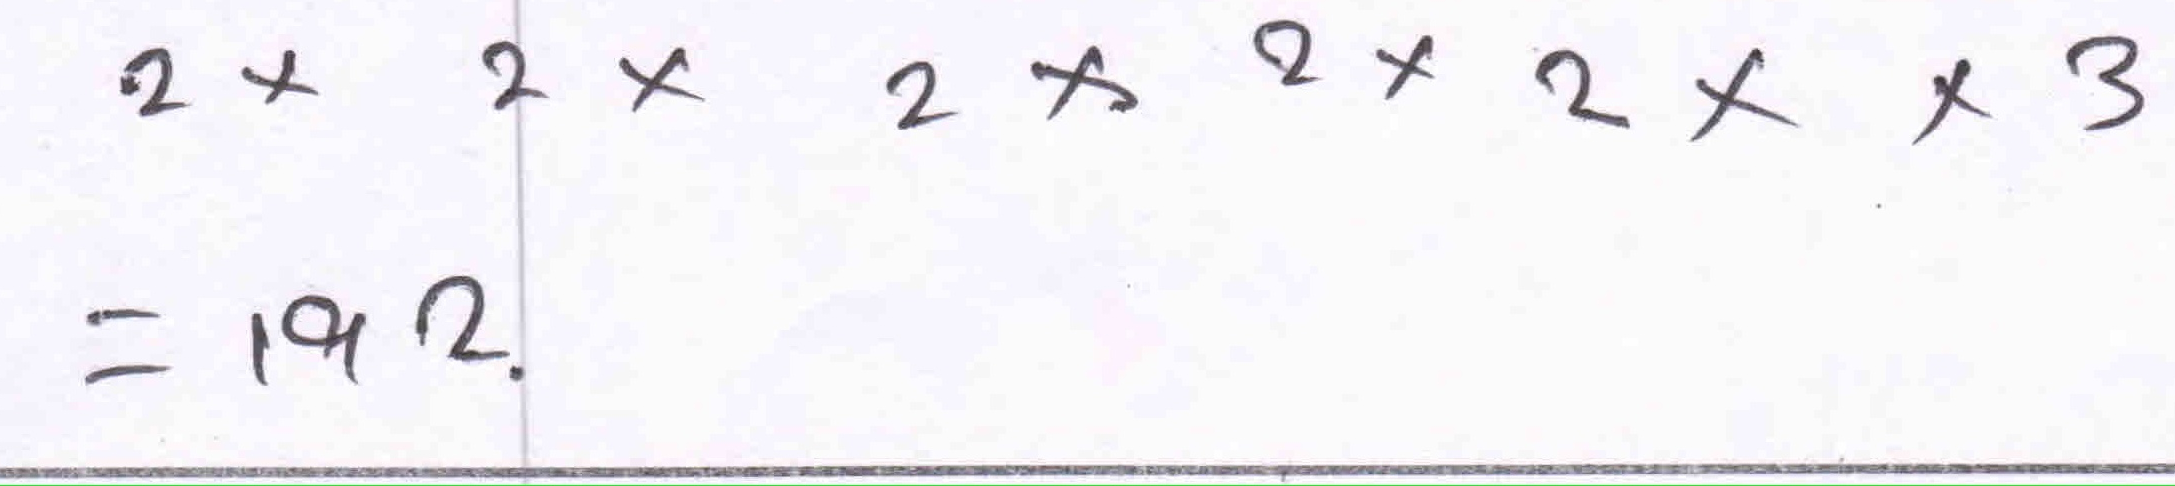 2 × 2 × 2 × 2 × 2 × × 3
= 192.